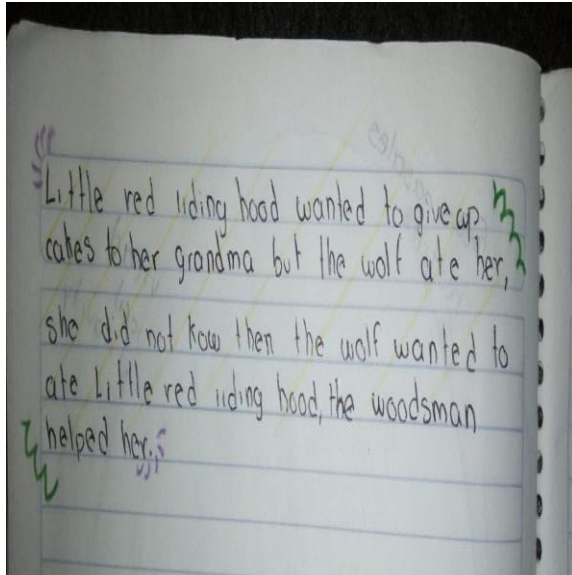 Little red riding hood wanted to give up
cakes to her grandma but the wolf ate her,
she did not kow then the wolf wanted to
ate Little red riding hood, the woodsman
helped her.